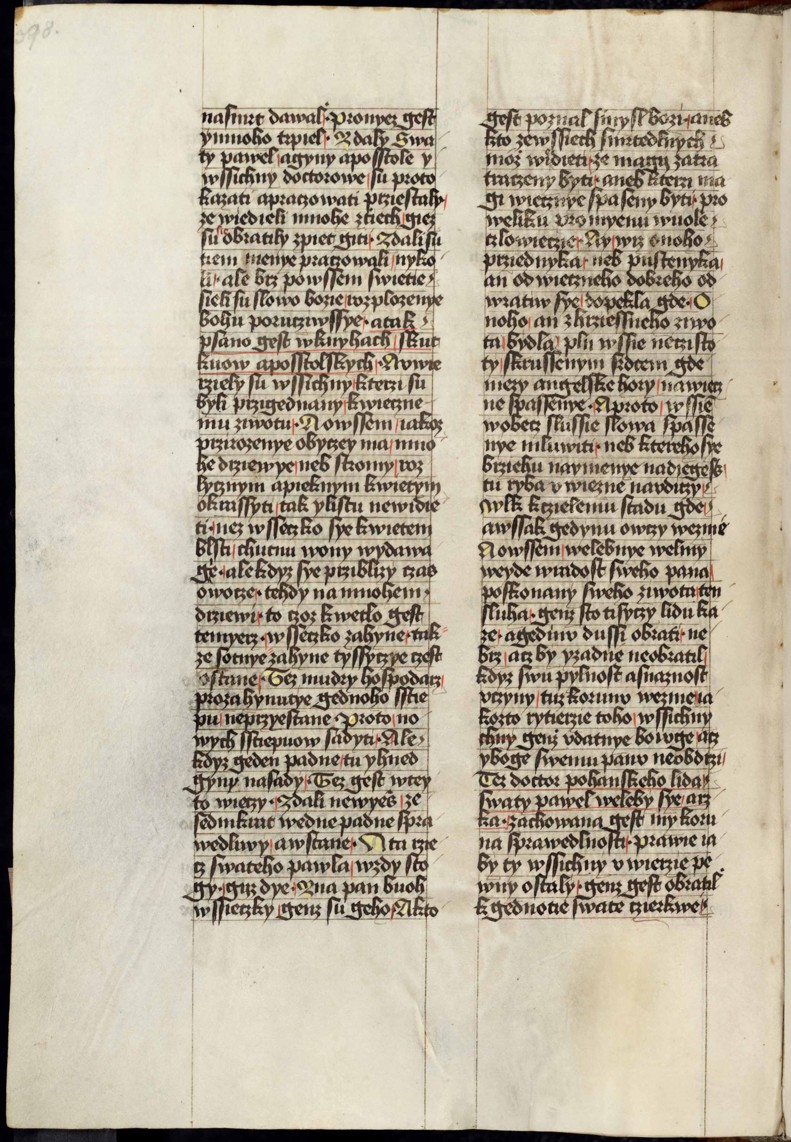 398.
nasmrt dawal · Pronyez gest
ymnoho trpiel · Zdaly Swa
ty pawel agyny aposstole y
wssichny doctorowe su proto
kazati apraczowati prziestaly
ze wiedieli mnohe ztiech giez
su obratily zpiet giti · Zdali su
tiem menye praczowali nyko
li · ale brz powssem swietie
sieli su slowo bozie wzplozenye
bohu porucziwssye · atak
psano gest wknyhach skut
kuow aposstolskych · Avwie
rziely su wssichny kterzi su
byli przigednany kwieczne
mu ziwotu · A owssem iakoz
przirozenye obyczey ma mno
he drziewye neb stromy roz
lycznym apieknym kwietym
okrassyti tak ylistu newidie
ti nez wsseczko sye kwietem
blsti chutnu wony wydawa
ge · ale kdyz sye prziblizy czas
owocze · tehdy na mnohem
drziewi · to czoz kwetlo gest
temyerz wsseczko zahyne · tak
ze sotnye zahyne tyssyczye czest
ostane · Tez mudry hospodarz
prozahynutye gednoho sstie
pu neprzyestane · Proto no
wych sstiepuow sadyti · Ale
kdyz geden padne tu yhned
gyny nasady · Tez gest wtey
to wieczy · Zdali newyes ze
sedmkrat wedne padne spra
wedliwy awstane · A tu rzie
cz swateho pawla wzdy sto
gy · giz dye · Zna pan buoh
wssieczky genz su geho · A kto
gest poznal smysl bozi · aneb
kto zewssiech smrtedlnych
moz widieti ze magy zatra
traczeny byti · aneb kterzi ma
gi wiecznye spaseny byti · pro
weliku promyenu wuole
czlowieczie · Ay wiz onoho
prziednyka neb pustenyka
an od wieczneho dobreho od
wratiw sye dopekla gde · O
noho an zhrziessneho ziwo
ta bydla pln wssie neczisto
ty skrussenym srdcem gde
mezy angelske hory nawiecz
ne spassenye · A proto wssie
wobecz slussie slowa spasse
nye mluwiti · neb kterehosye
brziehu naymenye nadiegess
tu ryba v wiezne navdiczy
Wlk kczielemu stadu gde
awssak gedynu owczy wezme
A owssem welebnye welmy
weyde wradost sweho pana
poskonany sweho ziwota ten
sluha · genz sto tisyczy lidu ka
ze · agedinu dussi obrati · ne
brz · acz by yzadne neobratil
kdyz swu pylnost asnaznost
vczyny · tuz korunu wezme ia
kozto rytierzie toho wssichny
chny genz vdatnye boiuge acz
yboge swemu panu neobdrzi
Tez doctor pohanskeho lida
swaty pawel weleby sye arz
ka · zachowana gest my koru
na sprawedlnosti · prawie ia
by ty wssichny v wierzie pe
wny ostaly · genz gest obratil
k gednotie swate czierkwe